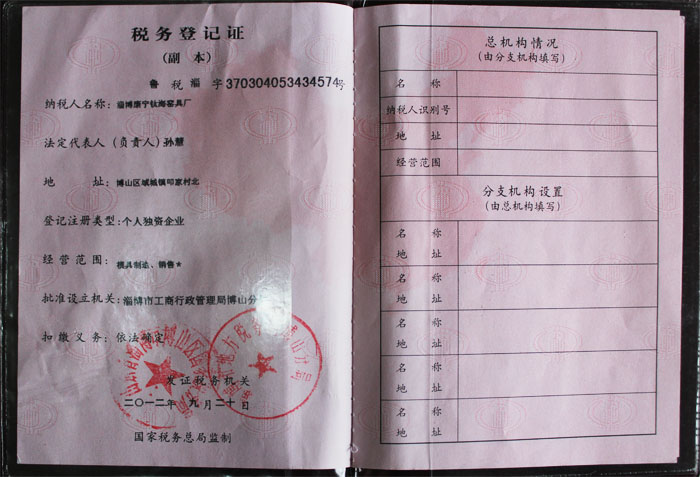 税务登记证
(副 本)
鲁 税 淄 字 370304053434574号
纳税人名称:淄博康宁钛海窑具厂
法定代表人(负责人)孙慧
地 址:博山区域城镇邱家村北
登记注册类型:个人独资企业
经营范围:模具制造、销售★
批准设立机关:淄博市工商行政管理局博山分
扣缴义务:依法确定
发证税务机关
二〇一二年 九月二十日
国家税务总局监制
总机构情况
(由分支机构填写)
名 称
纳税人识别号
地 址
经营范围
分支机构设置
(由总机构填写)
名 称
地 址
名 称
地 址
名 称
地 址
名 称
地 址
名 称
地 址